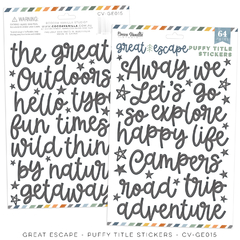 the great
Outdoors
hello, typ
fun times
wild thin
by natur
getaway
Cocoa Vanilla
64
great escape PUFFY TITLE
STICKERS
Away we
Let's go
so explore
happy life
Campers
road trip
adventure
GREAT ESCAPE - PUFFY TITLE STICKERS - CV-GE015